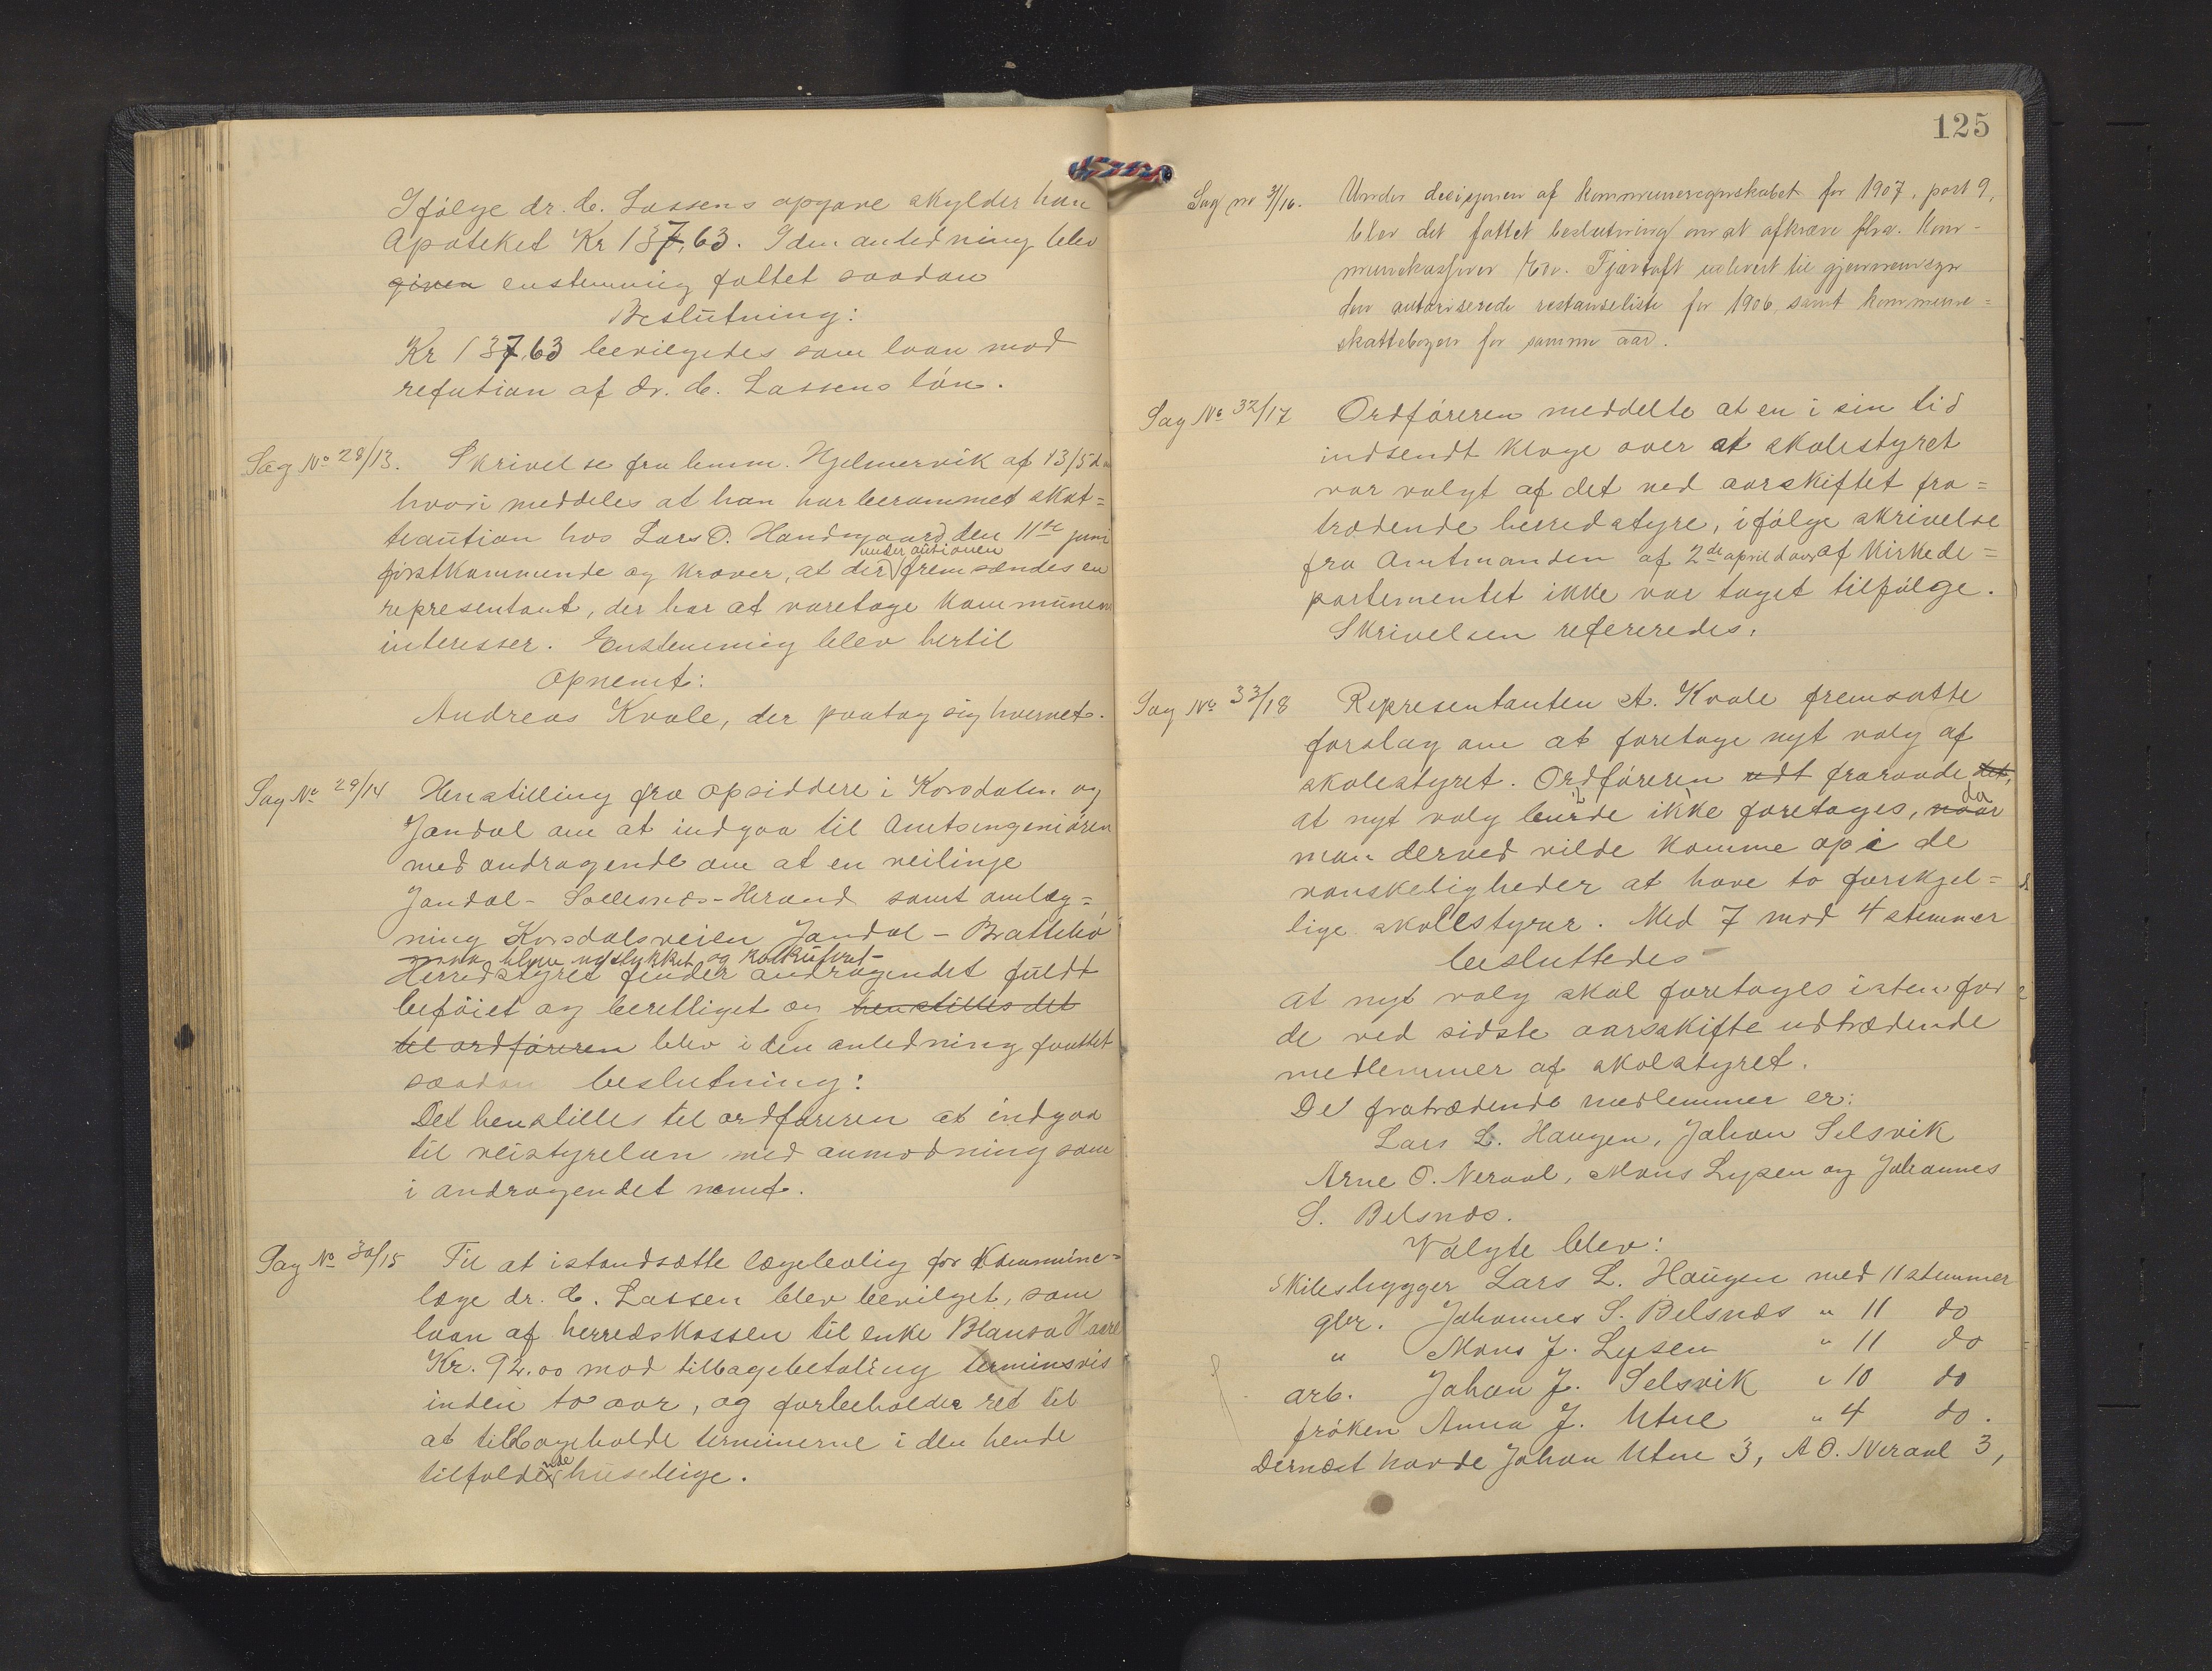 Ifølge dr. C. Lassens opgave skylder han
Apoteket Kr 137,63. I den anledning blev
given enstemmig fattet saadan
Beslutning:
Kr 137,63 bevilgedes som laan mod
refution af dr. C. Lassens løn.
Sag No 28/13. Skrivelse fra lensm. Hjelmervik af 13/5 d.a
hvori meddeles at han har berammet skat=
tauktion hos Lars O. Handegaard den 11te juni
førstkommende og kræver, at der under autionen fremsendes en
representant, der har at varetage kommunens
interesser. Enstemmig blev hertil
Opnevnt:
Andreas Kvale, der paatog sig hvervet.
Sag No 29/14 Henstilling fra opsiddere i Korsdalen og
Jondal om at indgaa til Amtsingeniøren
med andragende om at en veilinje
Jondal - Solesnes - Herand samt omlæg=
ning Korsdalsveien Jondal - Brattebø
maa blive opstukket og kalkuleret -
Herredstyret finder andragendet fuldt
beføiet og berettiget og henstilles det
til ordføreren blev i den anledning fattet
saadan beslutning:
Det henstilles til ordføreren at indgaa
til veistyrelsen med anmodning som
i andragendet nevnt.
Sag No 30/15 Til at istandsætte lægebolig for Kommune=
læge dr. C. Lassen blev bevilget, som
laan af herredskassen til enke Blansa Haare
Kr. 92.00 mod tilbagebetaling terminsvis
inden to aar, og forbeholder ret til
at tilbageholde terminerne i den hende
tilfaldende husleige.
125
Sag no 31/16. Under decisjonen af kommuneregnskabet for 1907, post 9,
blev det fattet beslutning om at afkræve fhv. kom-
munekasserer Edv. Tjøntoft udlevert til gjennemsyn
den autoriserede restanseliste for 1906 samt kommune=
skattebogen for samme aar.
Sag No 32/17 Ordføreren meddelte at en i sin tid
indsendt klage over at skolestyret
var valgt af det ved aarskiftet fra=
trædende herredstyre, ifølge skrivelse
fra Amtmanden af 2de april d aar af Kirkede=
partementet ikke var taget tilfølge.
Skrivelsen refereredes.
Sag No 33/18 Representanten A. Kvale fremsatte
forslag om at foretage nyt valg af
skolestyret. Ordføreren udt fraraade det,
at nyt valg burde ikke foretages, naar da
man derved vilde komme op i de
vanskeligheder at have to forskjel=
lige skolestyrer. Med 7 mod 4 stemmer
besluttedes
at nyt valg skal foretages istenfor
de ved sidste aarsskifte udtrædende
medlemmer af skolstyret.
De fratrædende medlemmer er:
Lars L. Haugen, Johan Selsvik
Arne O. Neraal, Mons Lysen og Johannes
S. Belsnes.
Valgte blev:
Skibsbygger Lars L. Haugen med 11 stemmer
gbr. Johannes S. Belsnes " 11 do
" Mons J. Lysen " 11 do
arb. Johan J. Selsvik " 10 do
frøken Anna J. Utne " 4 do.
Dernest havde Johan Utne 3, A O. Neraal 3,